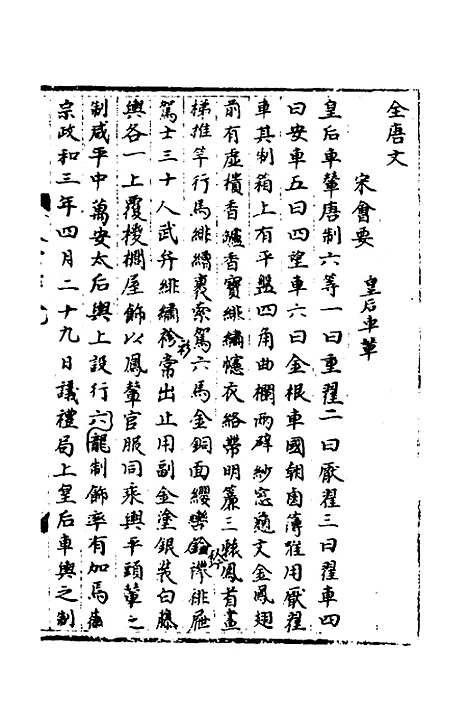 全唐文
宋會要　皇后車輦
皇后車輦唐制六等一曰重翟二曰厭翟三曰翟車四
曰安車五曰四望車六曰金根車國朝鹵簿雖用厭翟
車其制箱上有平盤四角曲欄兩壁紗窓龜文金鳳翅
前有虛樻香爐香寶緋繡幰衣絡帶明簾三轅鳳首畫
梯推竿行馬緋繡裹索駕六馬金銅面纓轡鈴緋屜
駕士三十人武弁緋繡衫常出止用副金塗銀裝白藤
輿各一上覆椶櫚屋飾以鳳輦官服同乘輿平頭輦之
制咸平中萬安太后輿上設行六龍制飾率有加焉
宗政和三年四月二十九日議禮局上皇后車輿之制